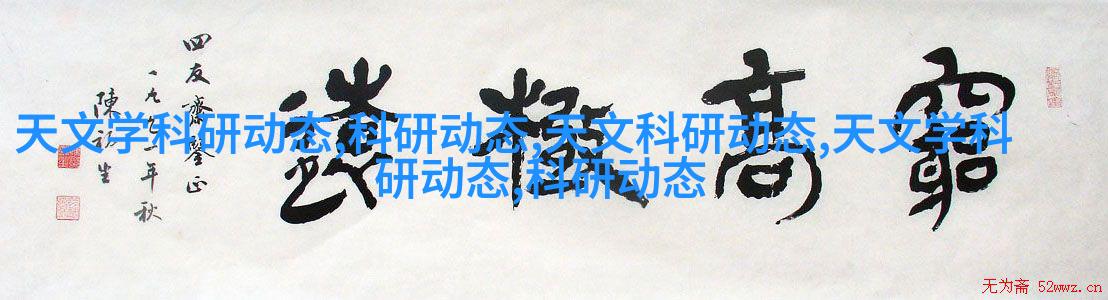 窮高極遠
四友齋鑒正
年秋
天文学科研动态,科研动态,天文科研动态,天文学科
研动态,科研动态
无为斋 52wwz.cn